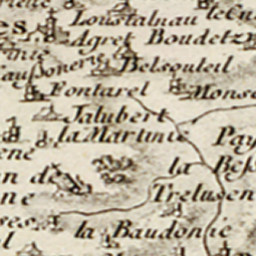 Loustalnau
Agret Boudetz
Belsouleil
Fontarel
Mons
Jalubert
la Martinie
Pay
la Bess
an de
Trelusen
ne
la Baudonie